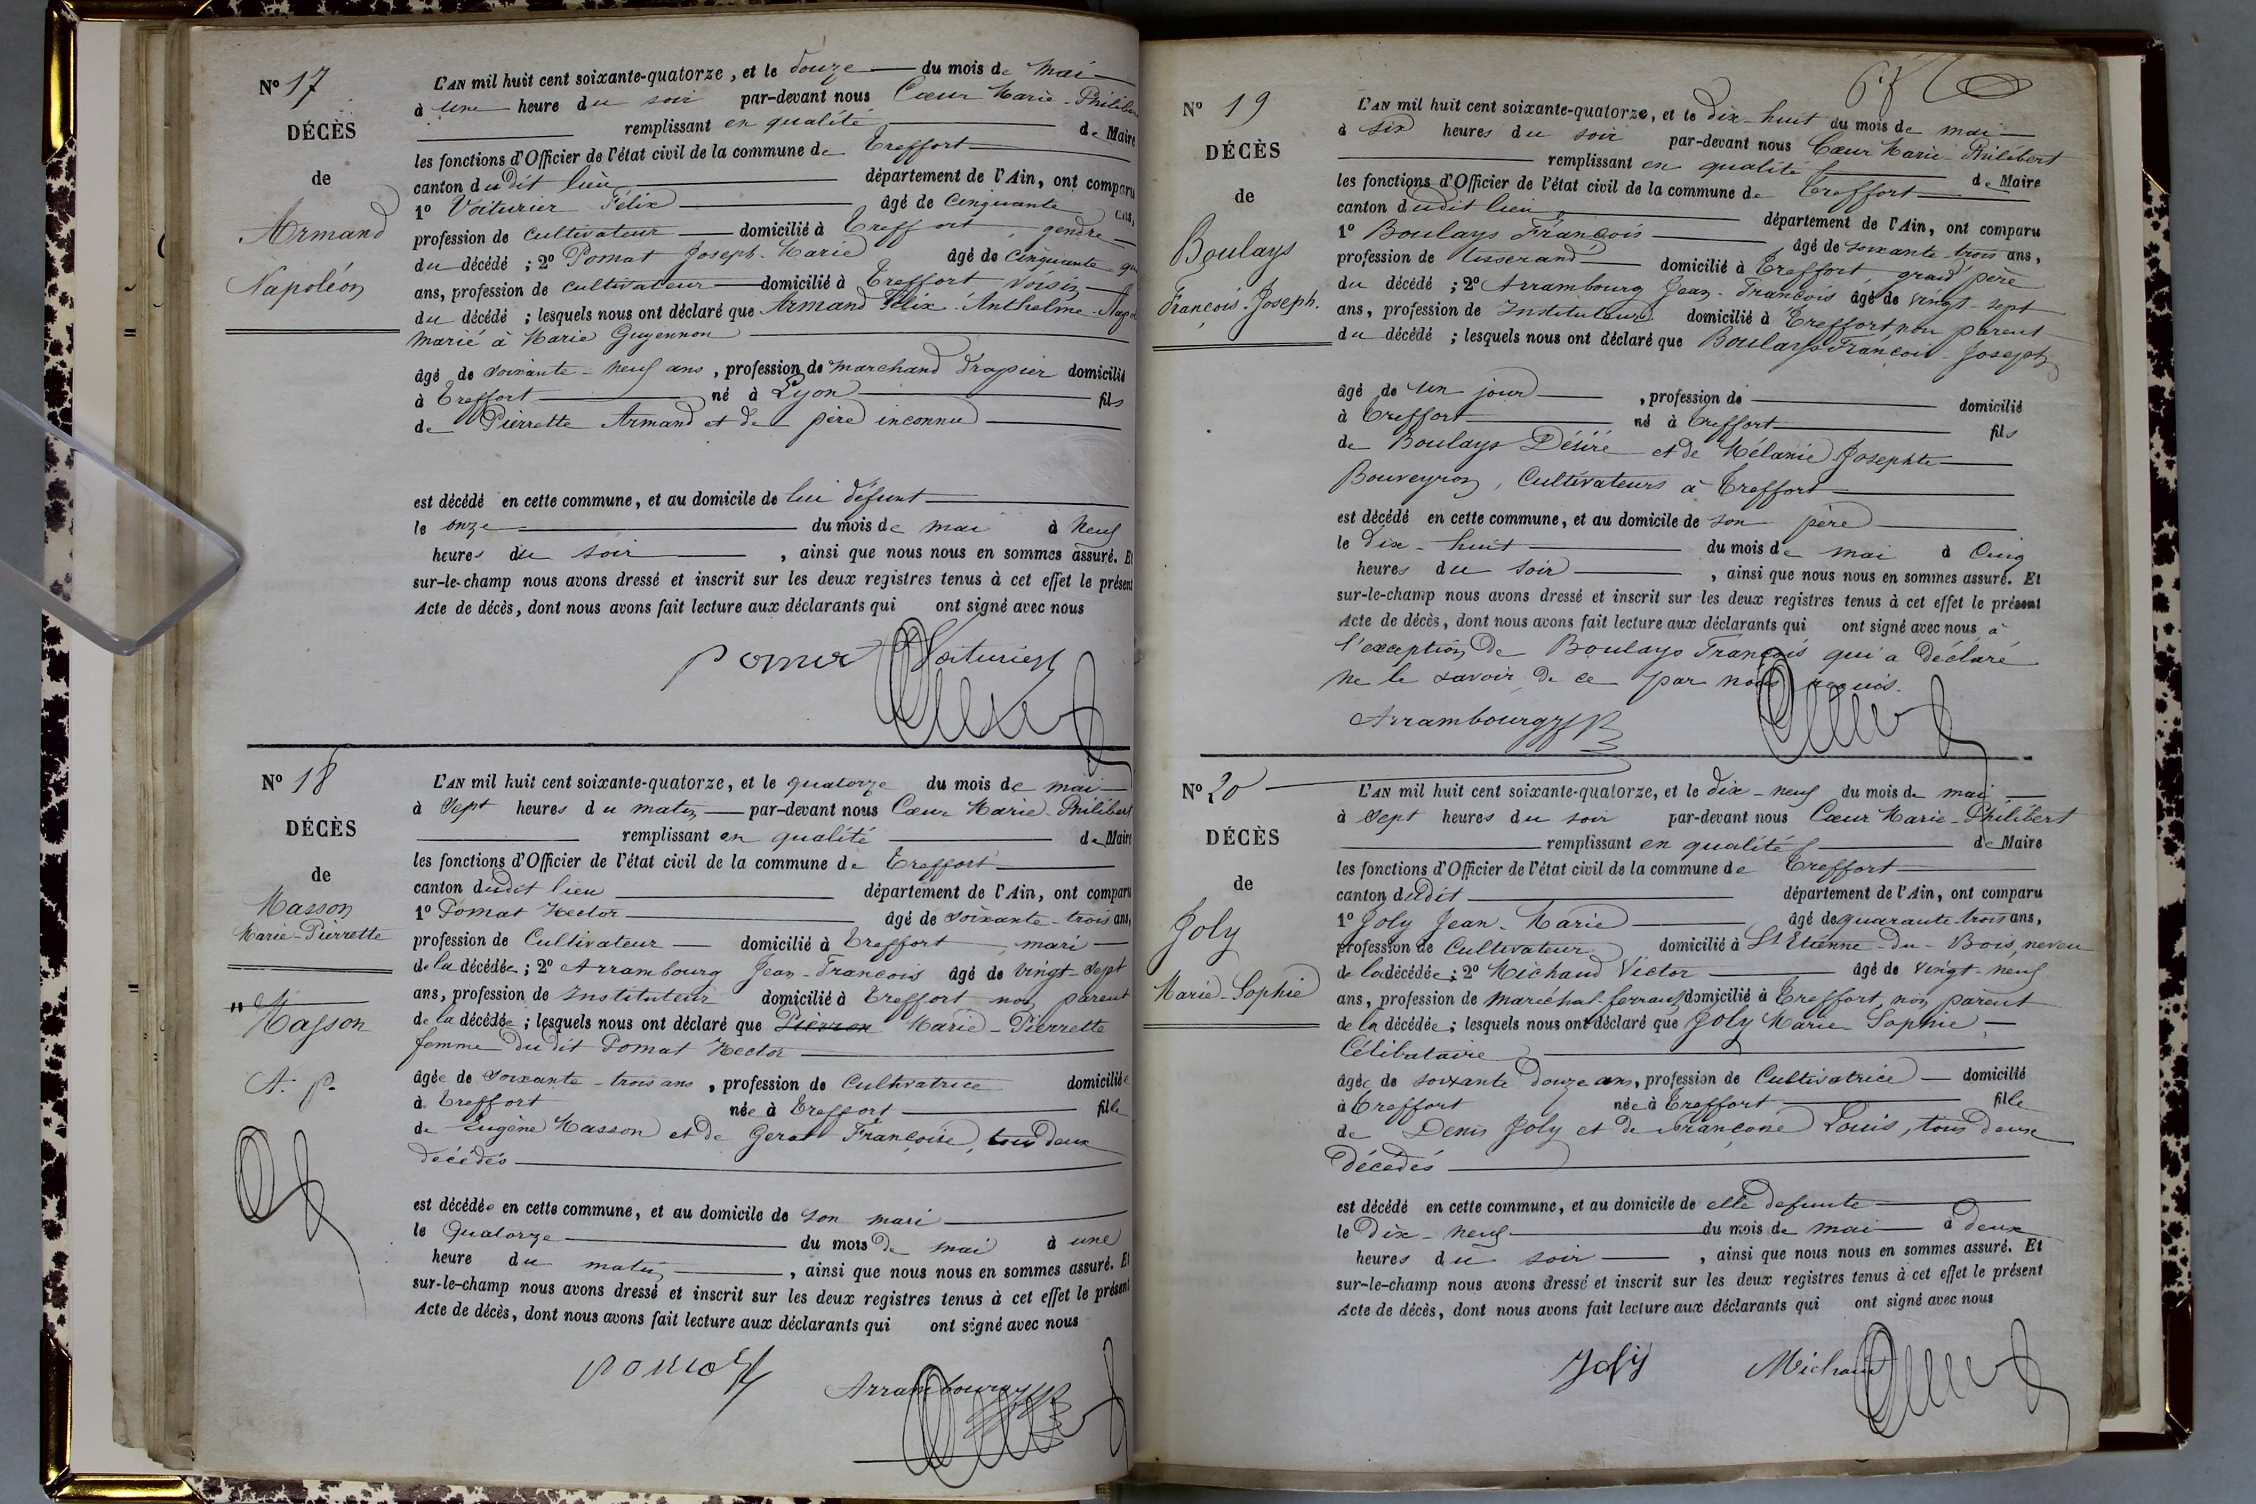 N° 17
DÉCÈS
de
Armand
Napoléon
L'AN mil huit cent soixante-quatorze, et le douze du mois de mai
à une heure du soir par-devant nous Cœur Marie-Philib
remplissant en qualité de Maire
les fonctions d'Officier de l'état civil de la commune de Treffort
canton dudit lieu département de l'Ain, ont comparu
1° Voiturier Félix âgé de Cinquante ans,
profession de Cultivateur domicilié à Treffort, gendre
du décédé ; 2° Pomat Joseph-Marie âgé de Cinquante
ans, profession de Cultivateur domicilié à Treffort voisin
du décédé ; lesquels nous ont déclaré que Armand Félix-Anthelme-Nap
marié à Marie Guyennon
âgé de soixante-neuf ans, profession de marchand drapier domicilié
à Treffort né à Lyon fils
de Pierrette Armand et de père inconnu
est décédé en cette commune, et au domicile de lui défunt
le onze du mois de mai à neuf
heures du soir, ainsi que nous nous en sommes assuré. Et
sur-le-champ nous avons dressé et inscrit sur les deux registres tenus à cet effet le présent
Acte de décès, dont nous avons fait lecture aux déclarants qui ont signé avec nous
pomat Voiturier
N° 18
DÉCÈS
de
Masson
Marie-Pierrette
" Masson
A. P.
L'AN mil huit cent soixante-quatorze, et le quatorze du mois de mai
à Sept heures du matin par-devant nous Cœur Marie-Philibert
remplissant en qualité de Maire
les fonctions d'Officier de l'état civil de la commune de Treffort
canton dudit lieu département de l'Ain, ont comparu
1° Pomat Hector âgé de soixante-trois ans,
profession de Cultivateur domicilié à Treffort, mari
de la décédée ; 2° Arrambourg Jean-François âgé de vingt-sept
ans, profession de Instituteur domicilié à Treffort non parent
de la décédée ; lesquels nous ont déclaré que Pierron Marie-Pierrette
femme dudit Pomat Hector
âgée de soixante-trois ans, profession de Cultivatrice domiciliée
à Treffort née à Treffort fille
de Eugène Masson et de Gerat Françoise, tous deux
décédés
est décédée en cette commune, et au domicile de son mari
le Quatorze du mois de mai à une
heure du matin, ainsi que nous nous en sommes assuré. Et
sur-le-champ nous avons dressé et inscrit sur les deux registres tenus à cet effet le présent
Acte de décès, dont nous avons fait lecture aux déclarants qui ont signé avec nous
pomat
Arrambourg
N° 19
DÉCÈS
de
Boulays
François-Joseph.
L'AN mil huit cent soixante-quatorze, et le dix-huit du mois de mai
à six heures du soir par-devant nous Cœur Marie-Philibert
remplissant en qualité de Maire
les fonctions d'Officier de l'état civil de la commune de Treffort
canton dudit lieu département de l'Ain, ont comparu
1° Boulays François âgé de soixante-trois ans,
profession de tisserand domicilié à Treffort grand père
du décédé ; 2° Arrambourg Jean-François âgé de vingt-sept
ans, profession de Instituteur domicilié à Treffort non parent
du décédé ; lesquels nous ont déclaré que Boulays François-Joseph
âgé de un jour, profession de domicilié
à Treffort né à Treffort fils
de Boulays Désiré et de Mélanie Josephte
Bouveyron, Cultivateurs à Treffort
est décédé en cette commune, et au domicile de son père
le dix-huit du mois de mai à Cinq
heures du soir, ainsi que nous nous en sommes assuré. Et
sur-le-champ nous avons dressé et inscrit sur les deux registres tenus à cet effet le présent
Acte de décès, dont nous avons fait lecture aux déclarants qui ont signé avec nous à
l'exception de Boulays François qui a déclaré
ne le savoir de ce par nous requis.
Arrambourg
N° 20
DÉCÈS
de
Joly
Marie-Sophie
L'AN mil huit cent soixante-quatorze, et le dix-neuf du mois de mai
à Sept heures du soir par-devant nous Cœur Marie-Philibert
remplissant en qualité de Maire
les fonctions d'Officier de l'état civil de la commune de Treffort
canton dudit département de l'Ain, ont comparu
1° Joly Jean-Marie âgé de quarante-trois ans,
profession de Cultivateur domicilié à St Etienne-du-Bois, neveu
de la décédée ; 2° Michaud Victor âgé de vingt-neuf
ans, profession de maréchal-ferrant domicilié à Treffort, non parent
de la décédée ; lesquels nous ont déclaré que Joly Marie Sophie
Célibataire
âgée de soixante douze ans, profession de Cultivatrice domicilié
à Treffort née à Treffort fille
de Denis Joly et de Françoise Louis, tous deux
décédés
est décédé en cette commune, et au domicile de elle defunte
le Dix-neuf du mois de mai à deux
heures du soir, ainsi que nous nous en sommes assuré. Et
sur-le-champ nous avons dressé et inscrit sur les deux registres tenus à cet effet le présent
Acte de décès, dont nous avons fait lecture aux déclarants qui ont signé avec nous
Joly Michaud